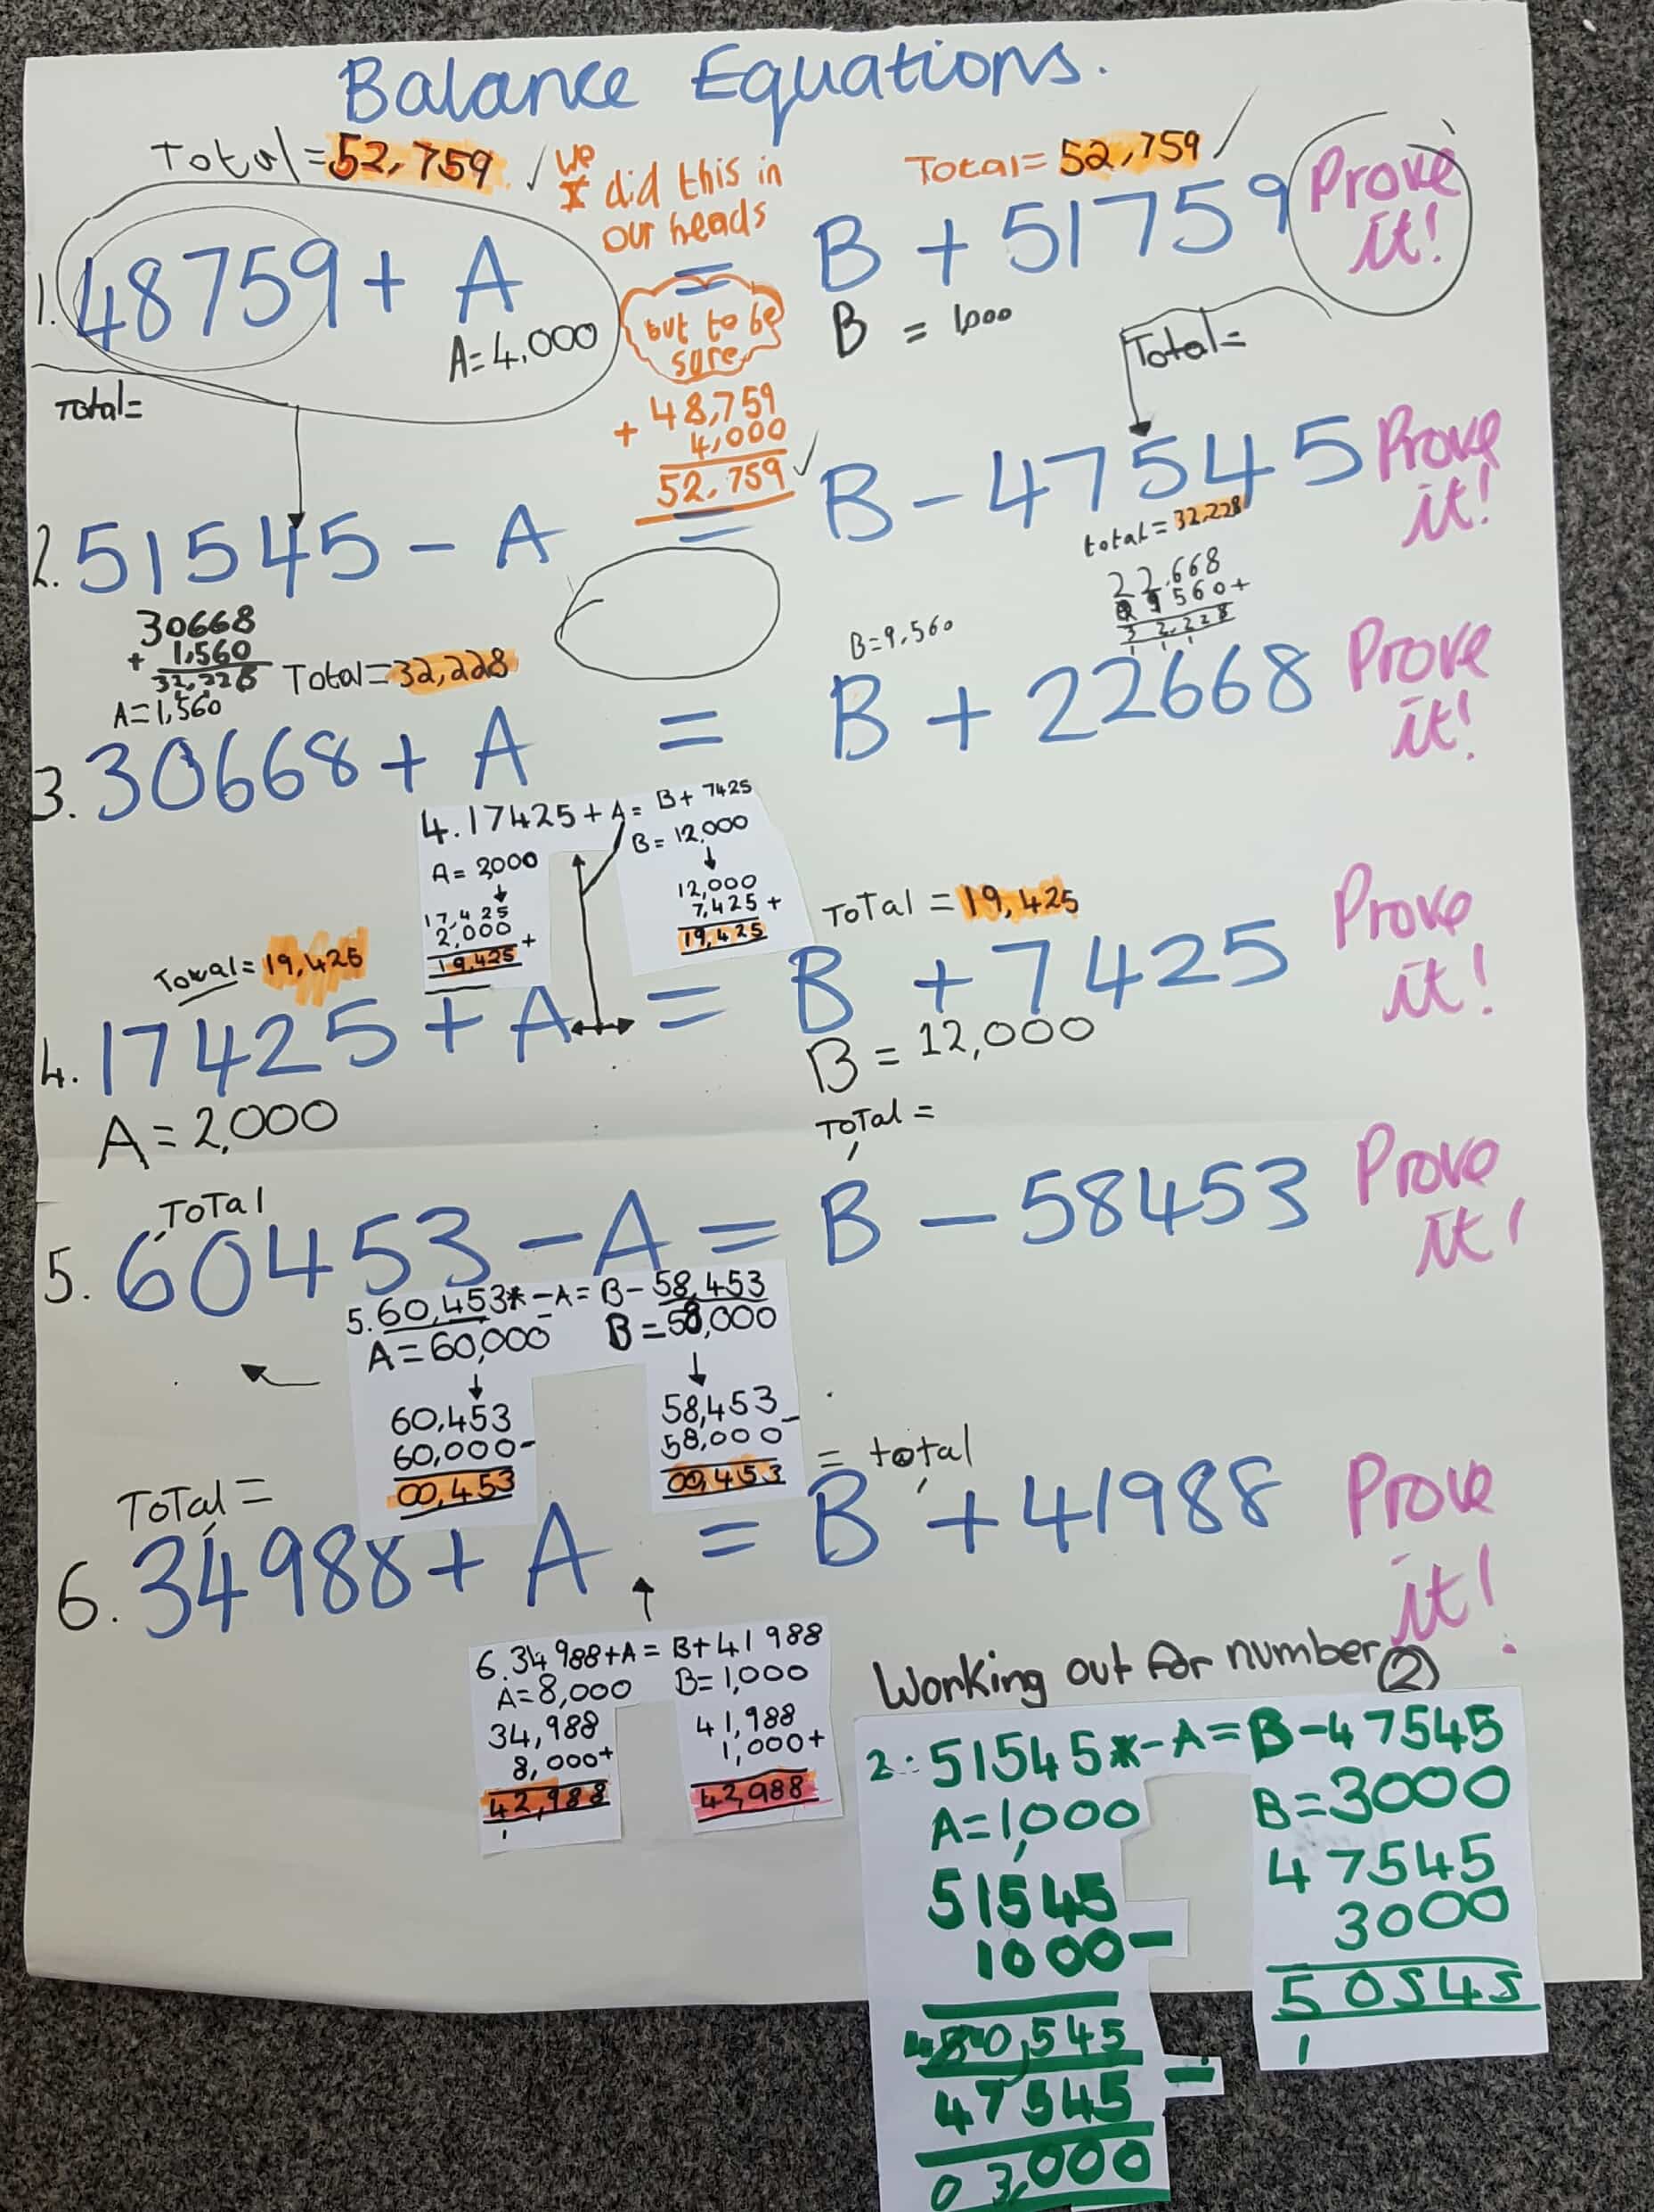 Balance Equations.
Total = 52,759 ✓
we
did this in
our heads
Total = 52,759 ✓
Prove
it!
1. 48759 + A = B + 51759
A = 4,000
B = 1,000
but to be
sure
48,759
+ 4,000
52,759 ✓
Total=
Total=
2. 51545 - A = B - 47545
Prove
it!
30668
+ 1,560
32,228
A = 1,560
Total = 32,228
total = 32,228
22,668
9560+
32,228
1 1 1
B = 9,560
3. 30668 + A = B + 22668
Prove
it!
4. 17425 + A = B + 7425
A = 2000
17,425
2,000 +
19,425
B = 12,000
12,000
7,425 +
19,425
Total = 19,425
Total = 19,425
4. 17425 + A = B + 7425
Prove
it!
A = 2,000
B = 12,000
Total
Total =
5. 60453 - A = B - 58453
Prove
it!
5. 60,453 - A = B - 58,453
A = 60,000
60,453
60,000 -
00,453
B = 58,000
58,453 -
58,000
00,453
Total =
= total
6. 34988 + A = B + 41988
Prove
it!
6. 34988 + A = B + 41988
A = 8,000
34,988
8,000+
42,988
1
B = 1,000
41,988
1,000+
42,988
Working out for number 2
2. 51545 - A = B - 47545
A = 1,000
51545
1000 -
50,545
47545 -
03,000
B = 3000
47545
3000
50545
1